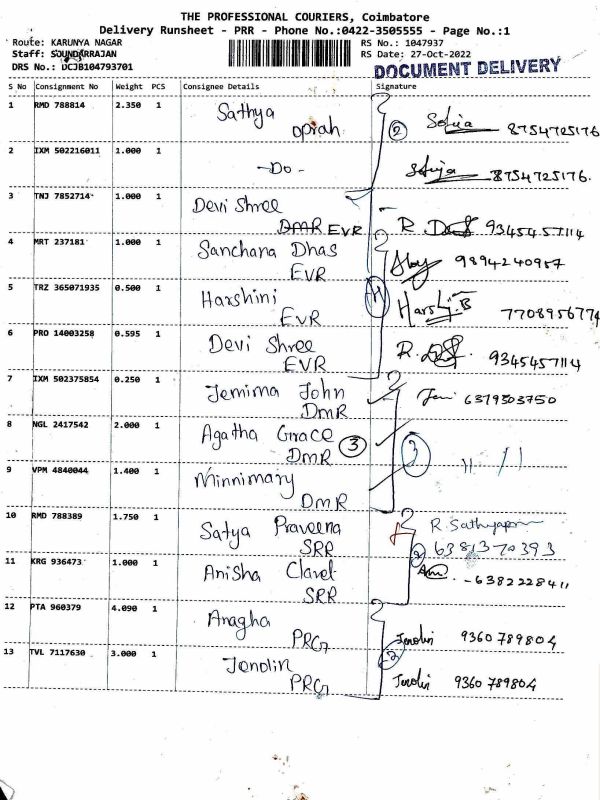 THE PROFESSIONAL COURIERS, Coimbatore
Delivery Runsheet - PRR - Phone No.:0422-3505555 - Page No.:1
Route: KARUNYA NAGAR RS No.: 1047937
Staff: SOUNDARRAJAN RS Date: 27-Oct-2022
DRS No.: DCJB104793701 DOCUMENT DELIVERY
S No Consignment No Weight PCS Consignee Details Signature
1 RMD 788814 2.350 1 Sathya
oprah 2 8754725176
2 IXM 502216011 1.000 1 -Do- 8754725176.
3 TNJ 7852714 1.000 1 Devi Shree
DMR EVR R. 9345457114
4 MRT 237181 1.000 1 Sanchana Dhas
EVR 9894240957
5 TRZ 365071935 0.500 1 Harshini
EVR 4 Harsh B 770895677
6 PRO 14003258 0.595 1 Devi Shree
EVR R. 9345457114
7 IXM 502375854 0.250 1 Jemima John
DMR Jem 6379503750
8 NGL 2417542 2.000 1 Agatha Grace
DMR 3 3 11 11
9 VPM 4840044 1.400 1 Minnimary
DMR
10 RMD 788389 1.750 1 Satya Praveena
SRR R. Sathya
6381370393
11 KRG 936473 1.000 1 Anisha Claret
SRR 2 - 6382228411
12 PTA 960379 4.090 1 Anagha
PRG Jenolin 9360789804
13 TVL 7117630 3.000 1 Jenolin
PRG 2 Jenolin 9360789804